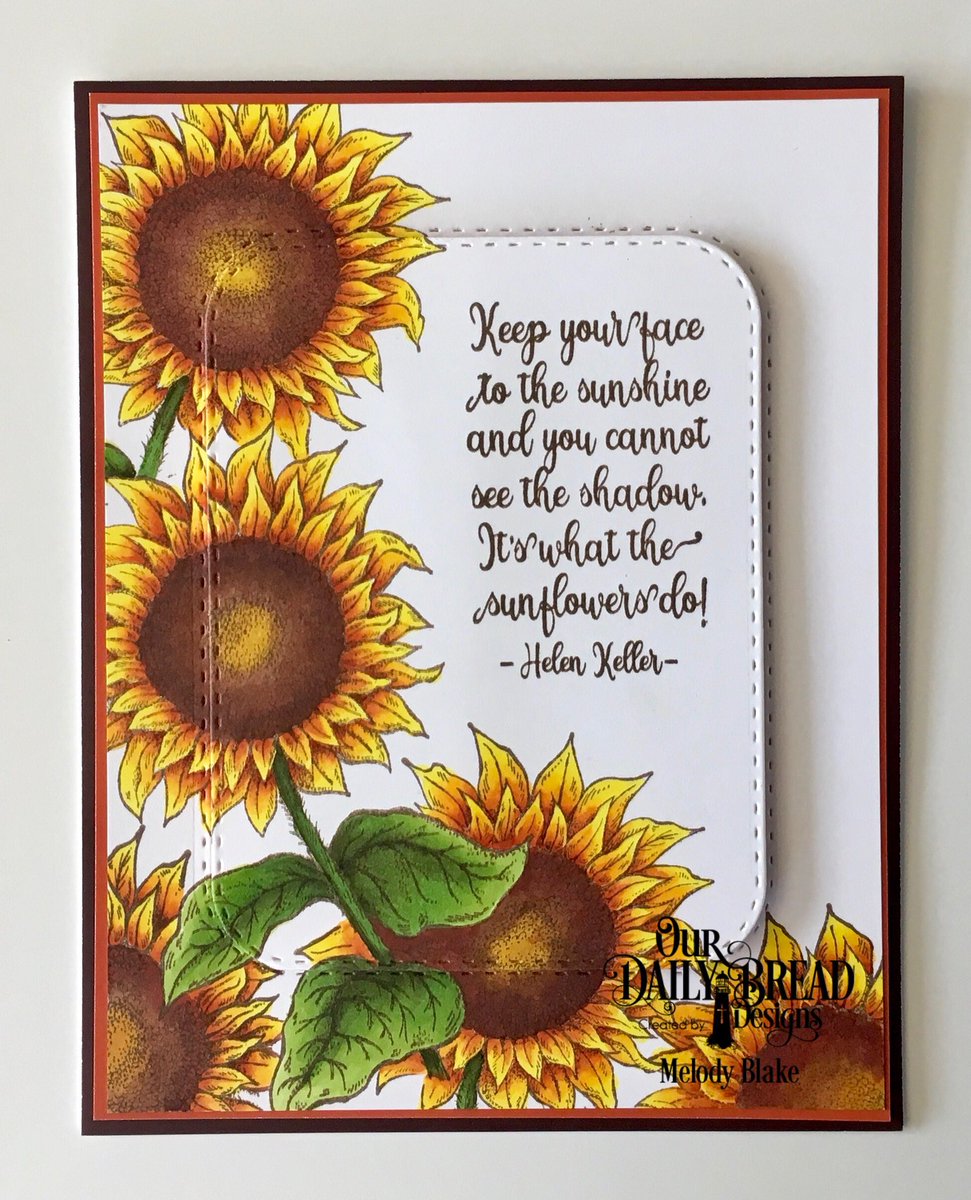 Keep your face
to the sunshine
and you cannot
see the shadow.
It's what the
sunflowers do!
- Helen Keller -
OUR
DAILY BREAD
Designs
Created by
Melody Blake